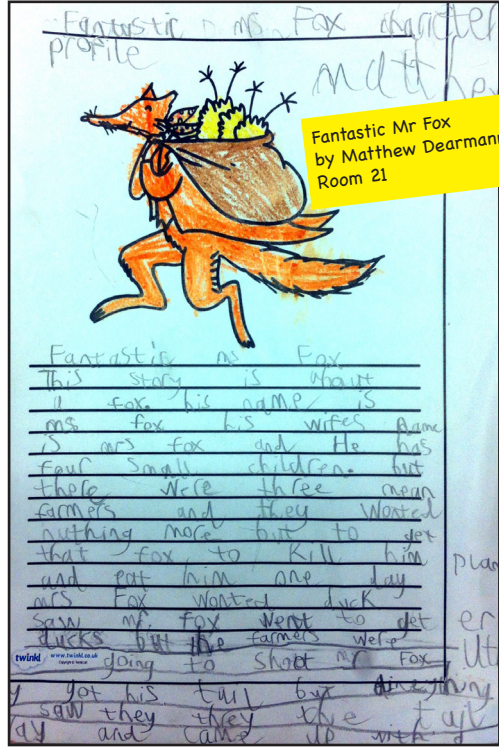 Fantastic ms Fox character
profile
matthew
Fantastic Mr Fox
by Matthew Dearmann
Room 21
Fantastic ms Fox
This story is about
a fox. his name is
ms fox his wifes name
is mrs fox and He has
four small children. but
there were three mean
farmers and they wonted
nuthing more but to get
that fox to kill him
and eat him one day
mrs Fox wonted duck
saw mr. fox went to get
ducks but the farmers were
twinkl www.twinkl.co.uk
going to shoot mr Fox
got his tail but
saw they they the tail
and came up with
plan
er